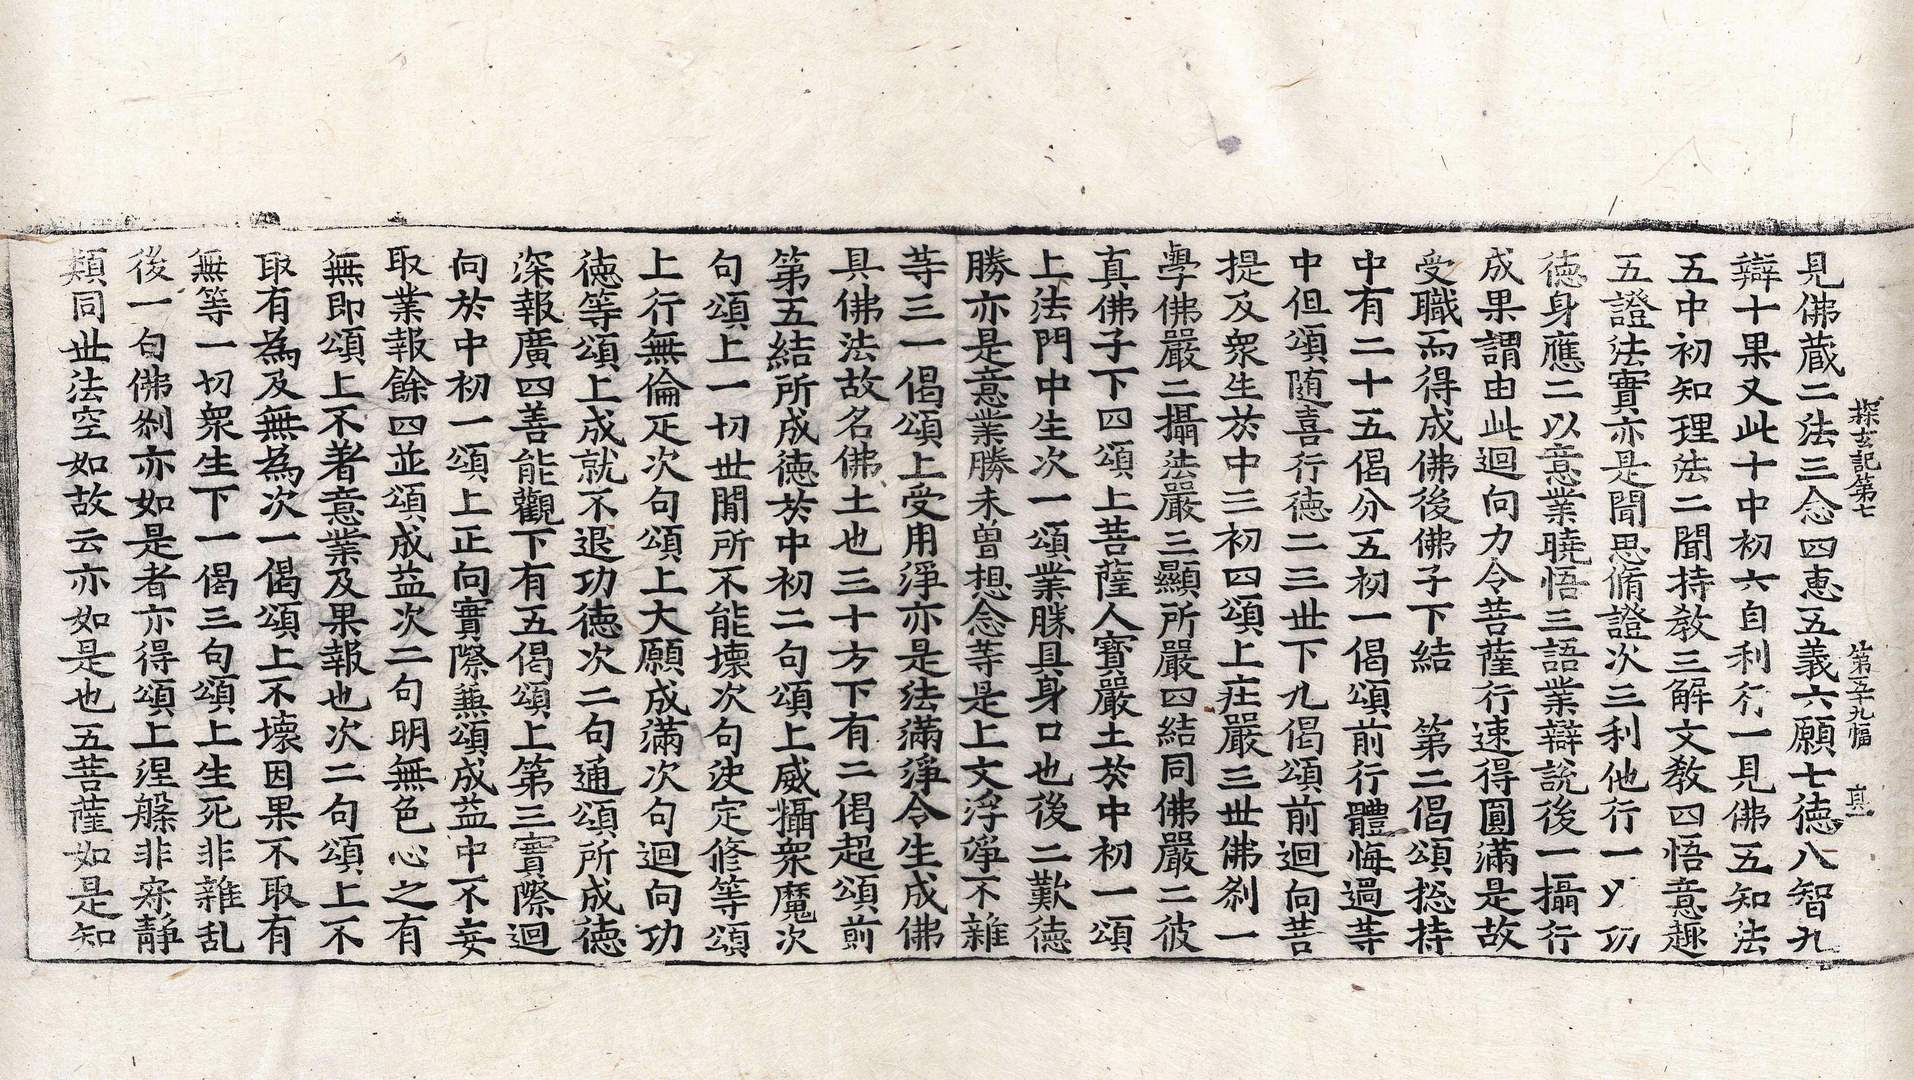 探玄記第七　第五十九幅　真
見佛蔵二法三念四恵五義六願七徳八智九
辯十果又此十中初六自利行一見佛五知法
五中初知理法二聞持教三解文教四悟意趣
五證法實亦是聞思脩證次三利他行一以功
徳身應二以意業曉悟三語業辯説後一攝行
成果謂由此迴向力令菩薩行速得圓滿是故
受職而得成佛後佛子下結　第二偈頌揔持
中有二十五偈分五初一偈頌前行體悔過等
中但頌随喜行徳二三世下九偈頌前迴向菩
提及衆生於中三初四頌上在嚴三世佛刹一
學佛嚴二攝法嚴三顯所嚴四結同佛嚴二彼
真佛子下四頌上菩薩人寶嚴土於中初一頌
上法門中生次一頌業勝具身口也後二歎徳
勝亦是意業勝未曽想念等是上文浮淨不雜
等三一偈頌上受用淨亦是法滿淨令生成佛
具佛法故名佛土也三十方下有二偈超頌前
第五結所成徳於中初二句頌上威攝衆魔次
句頌上一切世間所不能壊次句決定修等頌
上行無倫疋次句頌上大願成滿次句迴向功
徳等頌上成就不退功徳次二句通頌所成徳
深報廣四善能觀下有五偈頌上第三實際迴
向於中初一頌上正向實際兼頌成益中不妄
取業報餘四並頌成益次二句明無色心之有
無即頌上不著意業及果報也次二句頌上不
取有為及無為次一偈頌上不壊因果不取有
無等一切衆生下一偈三句頌上生死非雜乱
後一句佛刹亦如是者亦得頌上涅槃非寂静
類同世法空如故云亦如是也五菩薩如是知